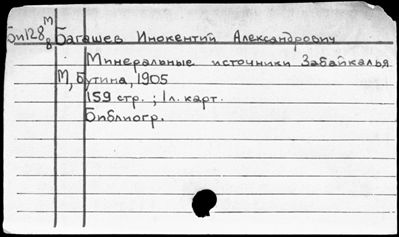 Бп128 М/8 Багашев Инокентий Александрович
Минеральные источники Забайкалья
М, Бутина, 1905
159 стр. ; 1л. карт.
Библиогр.